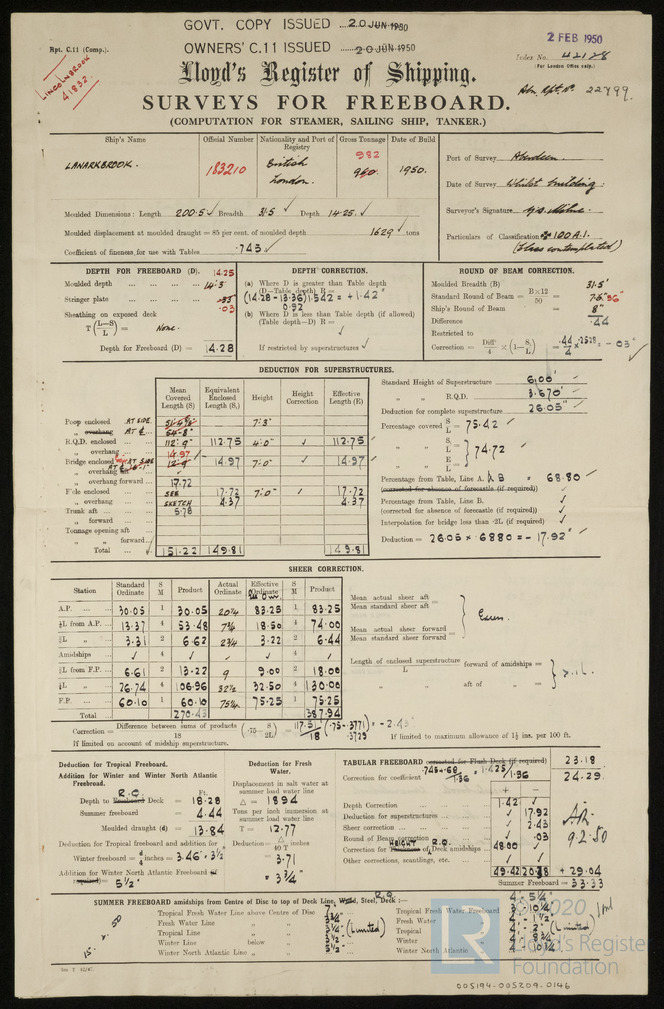 GOVT. COPY ISSUED ....20 JUN 1950
OWNERS' C.11 ISSUED .....20 JUN 1950
2 FEB 1950
Rpt. C.11 (Comp.).
Index No. 42128
(For London Office only.)
LINCOLNBROOK
41832.
Lloyd's Register of Shipping.
Abn. Rpt. No 22499.
SURVEYS FOR FREEBOARD.
(COMPUTATION FOR STEAMER, SAILING SHIP, TANKER.)
Ship's Name Official Number Nationality and Port of Registry Gross Tonnage Date of Build
LANARKBROOK. 183210 British London. 982 1950.
Port of Survey Aberdeen.
Date of Survey Whilst building.
Surveyor's Signature
Particulars of Classification 100 A.1.
(Class contemplated)
Moulded Dimensions: Length 200.5 Breadth 31.5 Depth 14.25
Moulded displacement at moulded draught = 85 per cent. of moulded depth 1629 tons
Coefficient of fineness for use with Tables .743
DEPTH FOR FREEBOARD (D).
14.25
Moulded depth ... 14'-3"
Stringer plate ... .03
Sheathing on exposed deck
T (L-S/L) = None.
Depth for Freeboard (D) = 14.28
DEPTH CORRECTION.
(a) Where D is greater than Table depth
(D-Table depth) R=
(14.28-13.36)1.542 = +1.42"
0.92
(b) Where D is less than Table depth (if allowed)
(Table depth-D) R=
If restricted by superstructures
ROUND OF BEAM CORRECTION.
Moulded Breadth (B) 31.5'
Standard Round of Beam = B×12/50 = 7.56"
Ship's Round of Beam = 8"
Difference .44
Restricted to
Correction = Diff/4 × (1-S₁/L) = .44/4 × .2528 = -.03"
DEDUCTION FOR SUPERSTRUCTURES.
Mean Covered Length (S) Equivalent Enclosed Length (S₁) Height Height Correction Effective Length (E)
Poop enclosed AT SIDE 7'-3"
" overhang AT ₵
R.Q.D. enclosed 112'-9" 112.75 4'-0" 112.75
" overhang
Bridge enclosed AT SIDE 14.97 14.97 7'-0" 14.97
" overhang aft
" overhang forward 17.72
F'cle enclosed SEE 17.72 7'-0" 17.72
" overhang SKETCH 4.37 4.37
Trunk aft 5.78
" forward
Tonnage opening aft
" " forward
Total 151.22 149.81 149.81
Standard Height of Superstructure 6.00'
" " R.Q.D. 3.670'
Deduction for complete superstructure 26.05"
Percentage covered S/L = 75.42
" " S₁/L =
" " E/L = 74.72
Percentage from Table, Line A. B = 68.80
(corrected for absence of forecastle (if required))
Percentage from Table, Line B.
(corrected for absence of forecastle (if required))
Interpolation for bridge less than .2L (if required)
Deduction = 26.05 × .6880 = -17.92"
SHEER CORRECTION.
Station Standard Ordinate S M Product Actual Ordinate Effective Ordinate S M Product
A.P. 30.05 1 30.05 20¾ 83.25 1 83.25
⅙L from A.P. 13.37 4 53.48 7¾ 18.50 4 74.00
⅓L " 3.31 2 6.62 2¾ 3.22 2 6.44
Amidships 4 4
⅓L from F.P. 6.61 2 13.22 9 9.00 2 18.00
⅙L " 26.74 4 106.96 32½ 32.50 4 130.00
F.P. 60.10 1 60.10 75¼ 75.25 1 75.25
Total 270.43 387.94
Mean actual sheer aft
Mean standard sheer aft =
Mean actual sheer forward
Mean standard sheer forward =
Excess.
Length of enclosed superstructure forward of amidships =
L
" " aft of " =
Correction = Difference between sums of products/18 (.75-S/2L) = 117.51/18 (.75-.3771) = -2.43"
.3729
If limited on account of midship superstructure.
If limited to maximum allowance of 1½ ins. per 100 ft.
Deduction for Tropical Freeboard.
Addition for Winter and Winter North Atlantic Freeboard.
R.Q. Ft.
Depth to Freeboard Deck = 18.28
Summer freeboard = 4.44
Moulded draught (d) = 13.84
Deduction for Tropical freeboard and addition for
Winter freeboard = d/4 inches = 3.46" 3½
Addition for Winter North Atlantic Freeboard (if required) = 5½"
Deduction for Fresh Water.
Displacement in salt water at summer load water line
△ = 1894
Tons per inch immersion at summer load water line
T = 12.77
Deduction = △/40 T inches
= 3.71
= 3¾"
TABULAR FREEBOARD corrected for Flush Deck (if required) 23.18
Correction for coefficient .743+.68/1.36 = 1.425/1.36 24.29
+ -
Depth Correction 1.42
Deduction for superstructures 17.92
Sheer correction 2.43
Round of Beam correction .03
Correction for HEIGHT R.Q. Deck amidships 48.00
Other corrections, scantlings, etc.
49.42 20.38 + 29.04
Summer Freeboard = 53.33
9.2.50
SUMMER FREEBOARD amidships from Centre of Disc to top of Deck Line, Wood, Steel, R.Q. Deck :—
Tropical Fresh Water Line above Centre of Disc
Fresh Water Line " " 3¾"
Tropical Line " " (Limited)
Winter Line below " 3½"
Winter North Atlantic Line " " 5½"
4'- 5¼"
Tropical Fresh Water Freeboard
Fresh Water " 4'- 1½"
Tropical " (Limited)
Winter " 4'- 8¾"
Winter North Atlantic " 4'- 10¾"
© 2020
Lloyd's Register
Foundation
005194-005209-0146